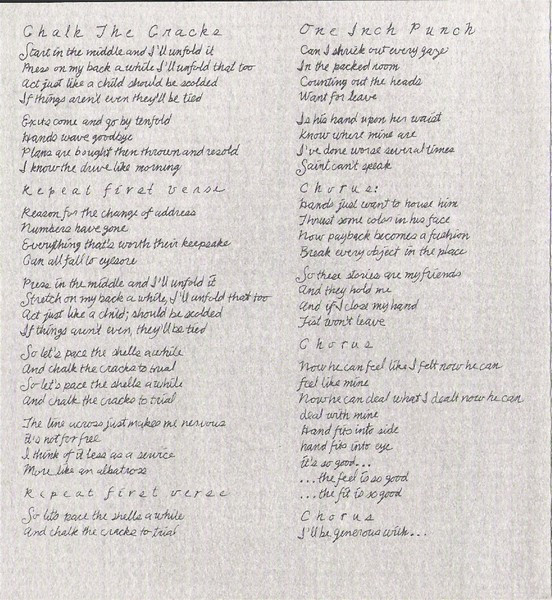 Chalk The Cracks
Start in the middle and I'll unfold it
Press on my back a while I'll unfold that too
Act just like a child should be scolded
If things aren't even they'll be tied
Exits come and go by tenfold
Hands wave goodbye
Plans are bought then thrown and resold
I know the drive like morning
Repeat first verse
Reason for the change of address
Numbers have gone
Everything that's worth their keepsake
Can all fall to eyesore
Press in the middle and I'll unfold it
Stretch on my back a while, I'll unfold that too
Act just like a child; should be scolded
If things aren't even, they'll be tied
So let's pace the shells a while
And chalk the cracks to trial
So let's pace the shells a while
And chalk the cracks to trial
The line across just makes me nervous
it's not for free
I think of it less as a service
More like an albatross
Repeat first verse
So let's pace the shells a while
And chalk the cracks to trial
One Inch Punch
Can I shrick out every gaze
In the packed room
Counting out the heads
Want for leave
Is his hand upon her waist
Know where mine are
I've done worse several times
Saint can't speak
Chorus:
Hands just want to house him
Thrust some color in his face
Now payback becomes a fashion
Break every object in the place
So these stories are my friends
And they hold me
And if I close my hand
Fist won't leave
Chorus
Now he can feel like I felt now he can
feel like mine
Now he can deal what I dealt now he can
deal with mine
Hand fits into side
hand fits into eye
it's so good...
...the feel is so good
...the fit is so good
Chorus
I'll be generous with...